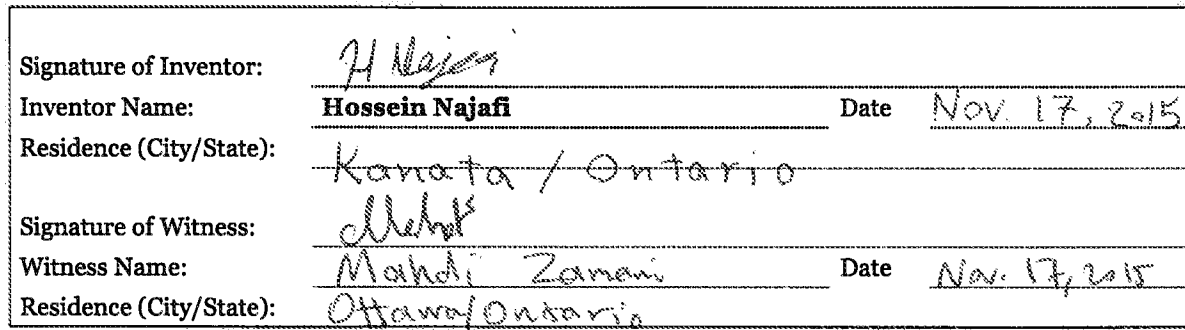 Signature of Inventor: H Najafi
Inventor Name: Hossein Najafi Date Nov. 17, 2015
Residence (City/State): Kanata / Ontario
Signature of Witness:
Witness Name: Mahdi Zamani Date Nov. 17, 2015
Residence (City/State): Ottawa/Ontario